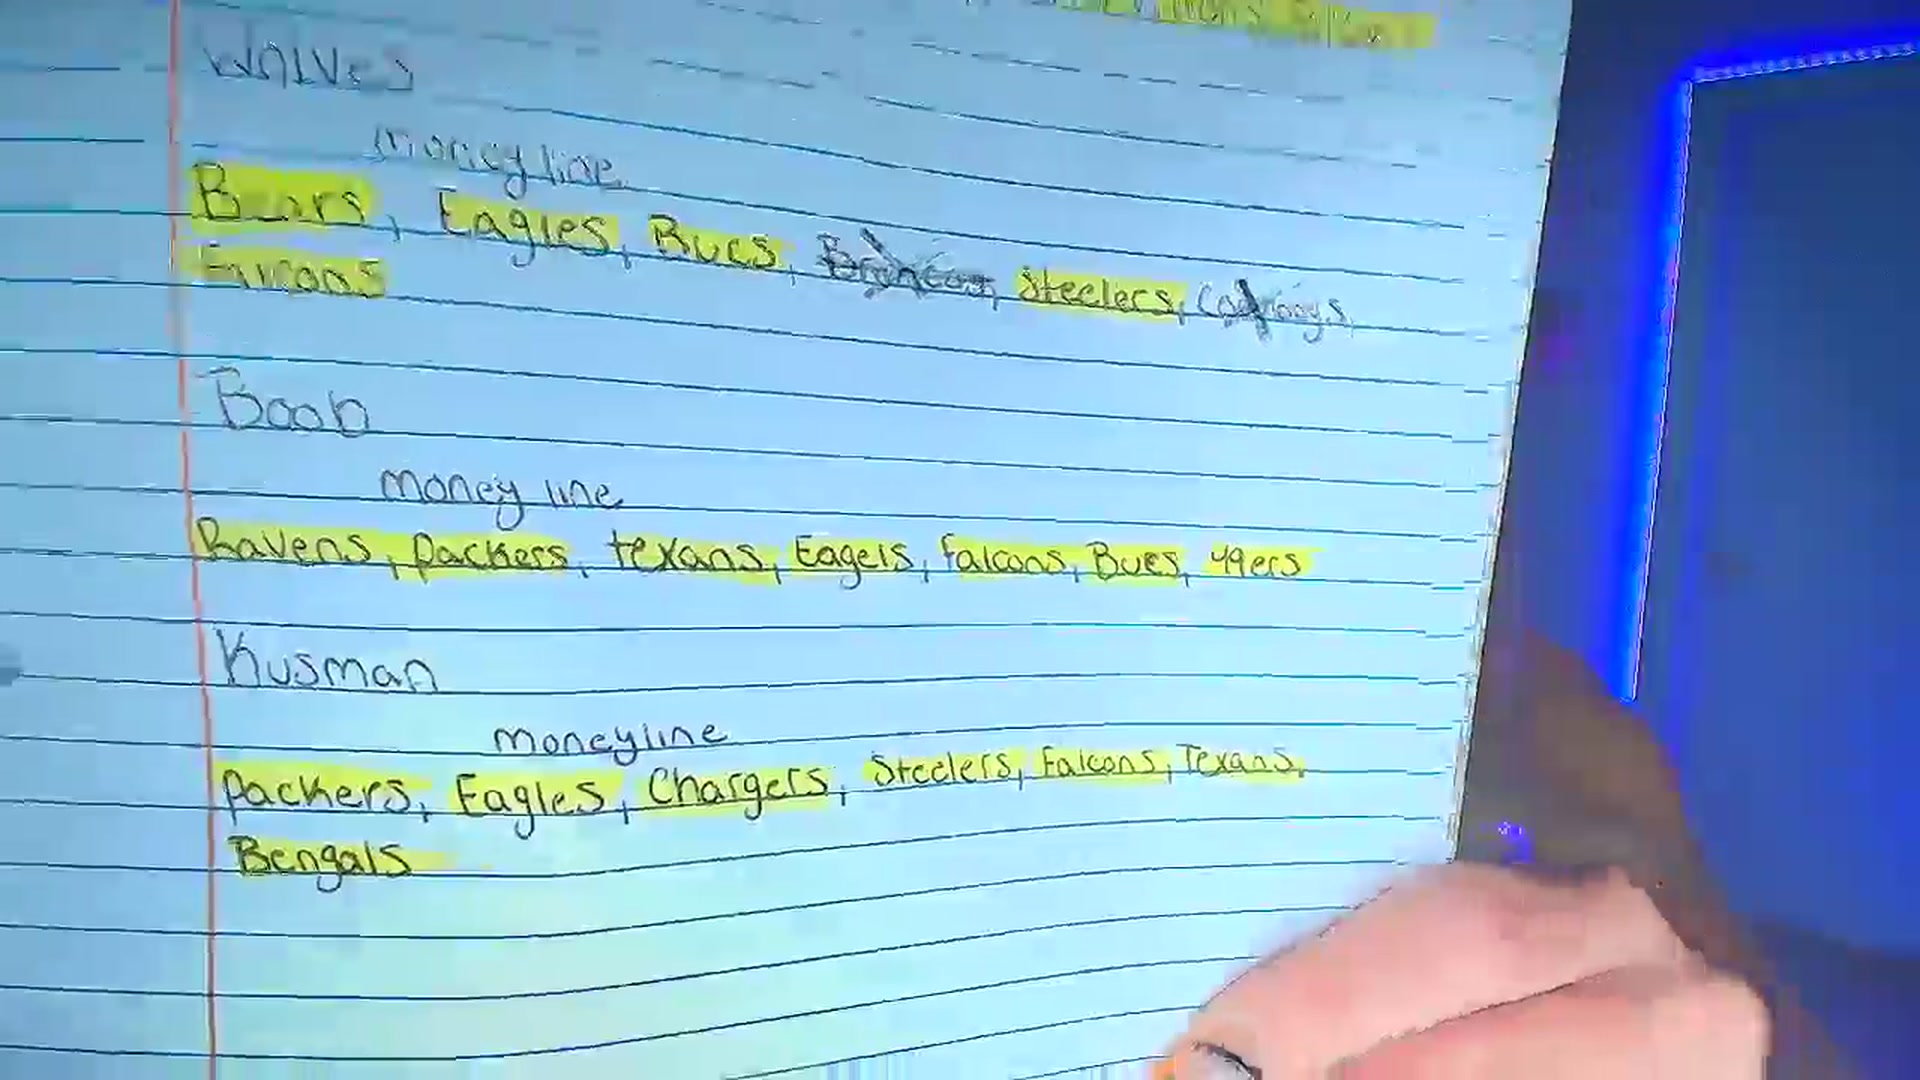 money line
Bears, Eagles, Bucs, Broncos, Steelers, Cowboys,
Falcons
Boob
money line
Ravens, packers, texans, Eagels, falcons, Bucs, 49ers
Kusman
moneyline
Packers, Eagles, Chargers, Steelers, Falcons, Texans,
Bengals